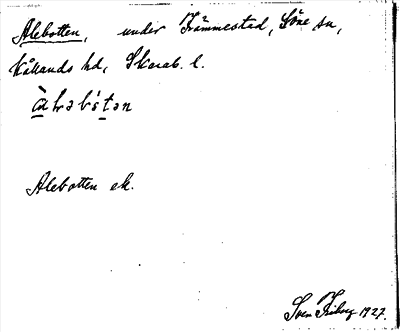 Alebotten, under Främmestad, Söne sn,
Kållands hd, Skarab. l.
Alebotten ek.
Sven Friberg 1927.